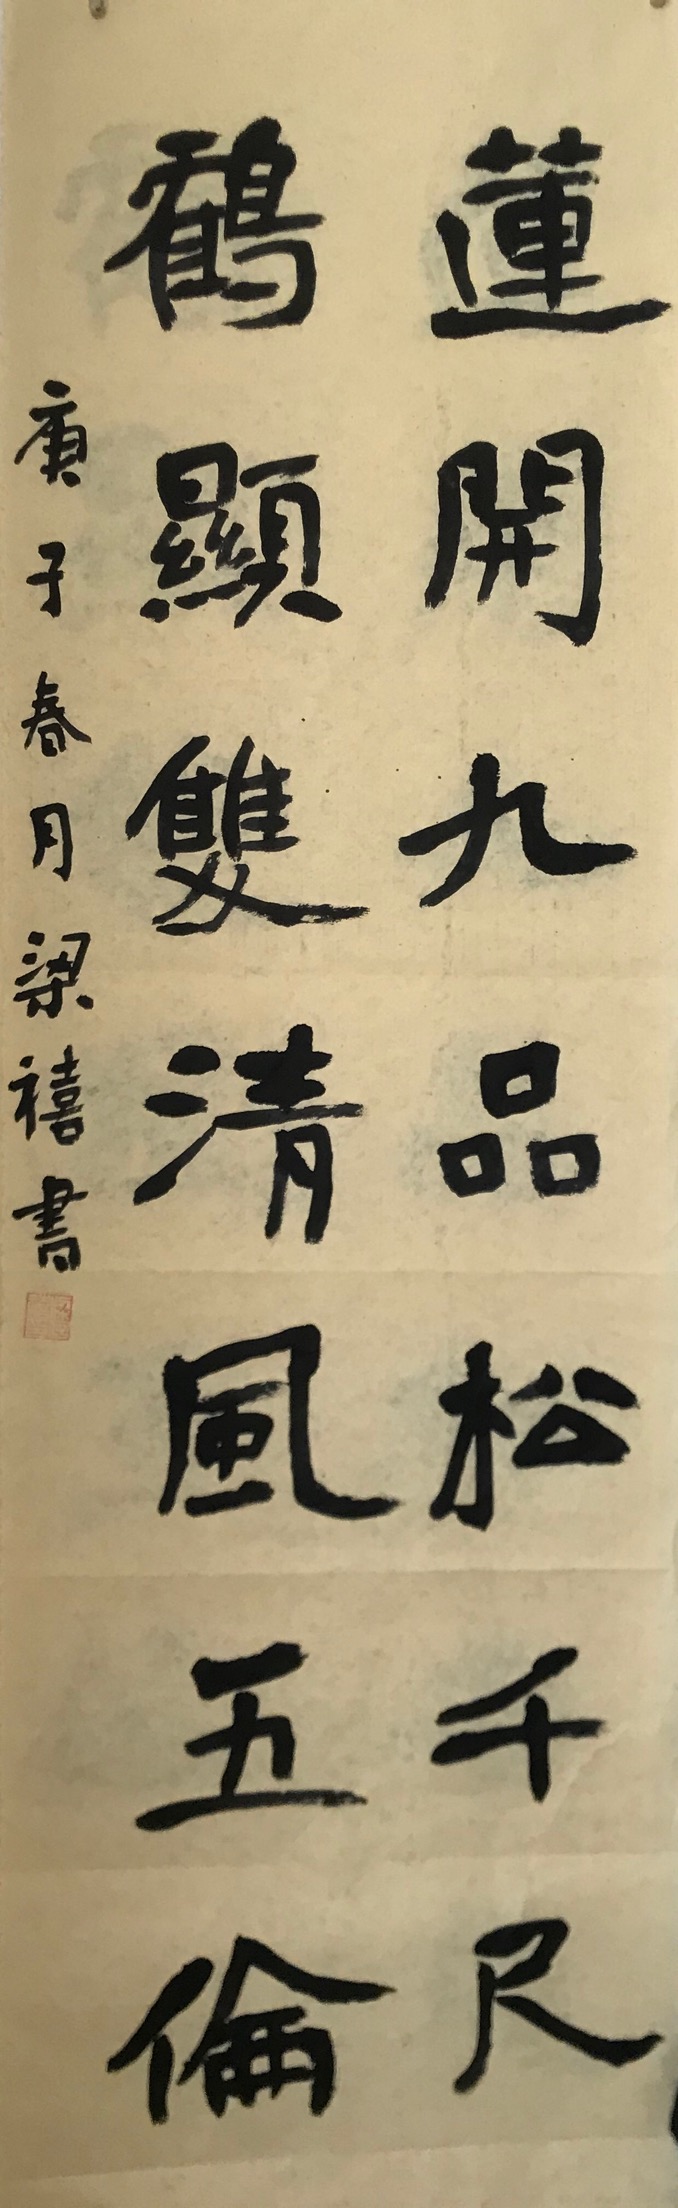 蓮開九品松千尺
鶴顯雙清風五倫
庚子春月梁禧書